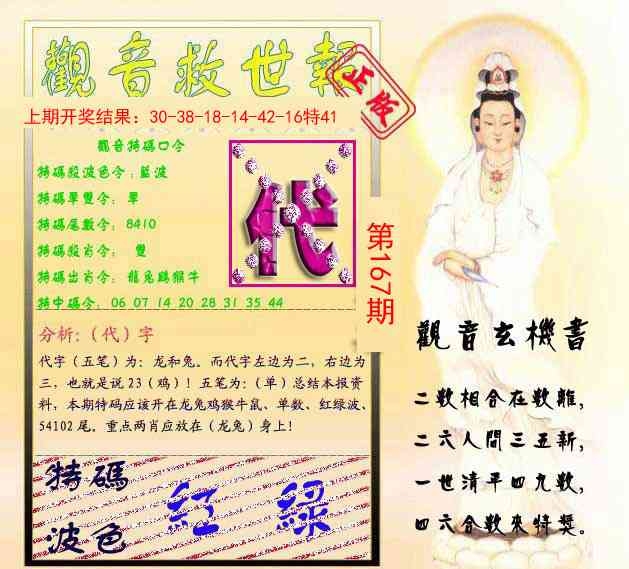 觀音救世報
正版
上期开奖结果：30-38-18-14-42-16特41
觀音特碼口令
特碼殺波色令：藍波
特碼單雙令：單
特碼尾數令：8410
特碼殺肖令： 雙
特碼出肖令：龍兔鷄猴牛
特中碼令：06 07 14 20 28 31 35 44
代
第167期
分析:（代）字
代字（五笔）为：龙和兔。而代字左边为二，右边为
三，也就是说 23（鸡）！五笔为：（单）总结本报资
料，本期特码应该开在龙兔鸡猴牛鼠、单数、红绿波、
54102 尾。重点两肖应放在（龙兔）身上！
特碼
波色
紅 綠
觀音玄機書
二數相合在數離，
二六人間三五新，
一世清平四九數，
四六合數來特獎。